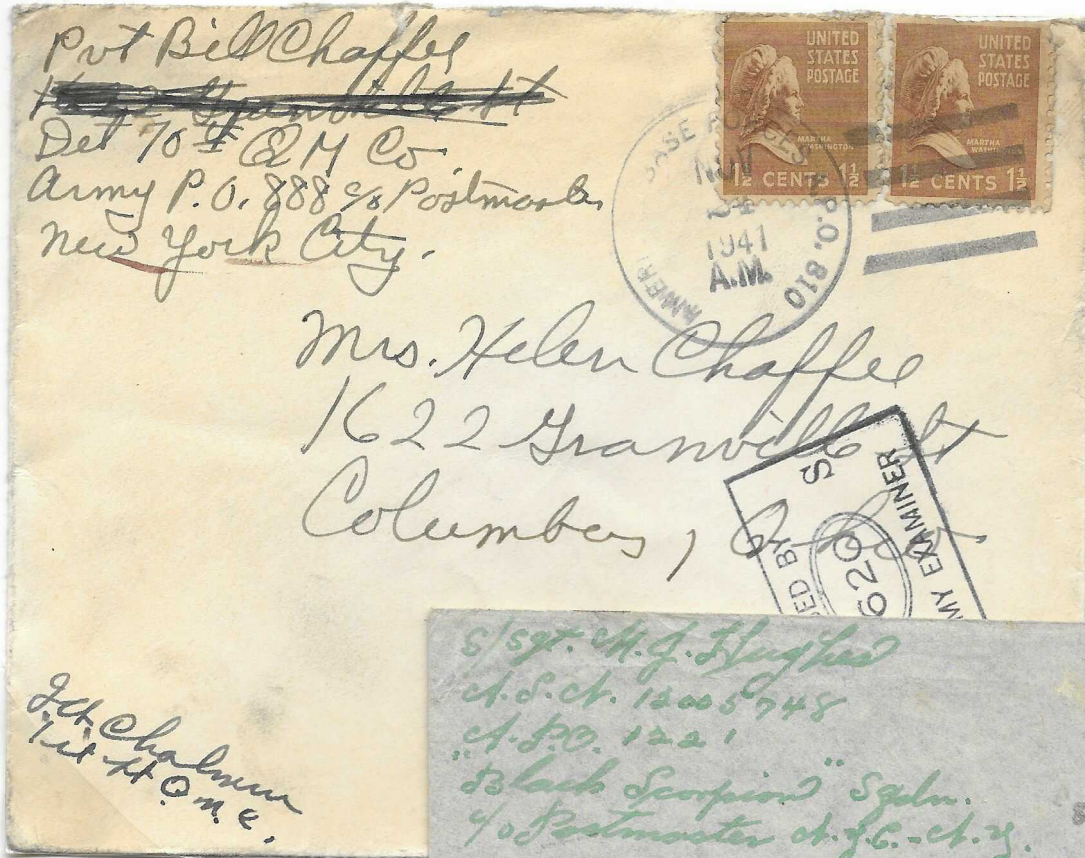 Pvt Bill Chaffee
Det 70th QM Co.
Army P.O. 888 c/o Postmaster
New York City.
UNITED STATES POSTAGE
MARTHA WASHINGTON
1½ CENTS 1½
UNITED STATES POSTAGE
MARTHA
1½ CENTS 1½
BASE FORCES A.P.O. 810
NOV
24
1941
A.M.
Mrs. Helen Chaffee
1622 Granville St
Columbus, Ohio.
S
620
ARMY EXAMINER
Chalmers
1st Lt Q.M.C.
S/Sgt. M. J. Hughes
A.S.N. 12005748
A.P.O. 1221
"Black Scorpion" Sqdn.
c/o Postmaster N.Y.C. - N.Y.